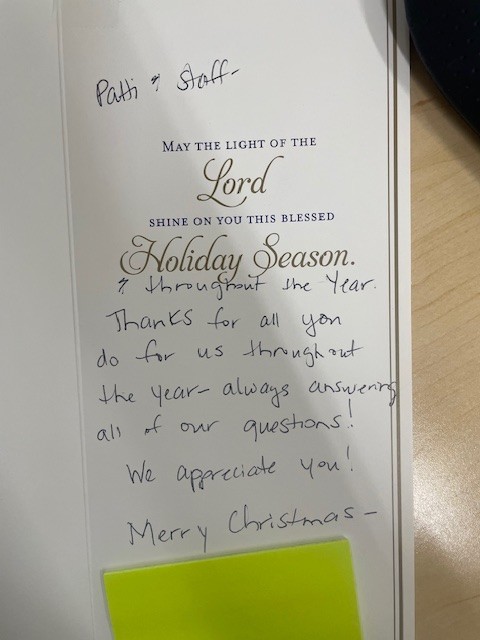 Patti & Staff-
MAY THE LIGHT OF THE
Lord
SHINE ON YOU THIS BLESSED
Holiday Season.
& throughout the Year.
Thanks for all you
do for us throughout
the year- always answering
all of our questions!
We appreciate you!
Merry Christmas-